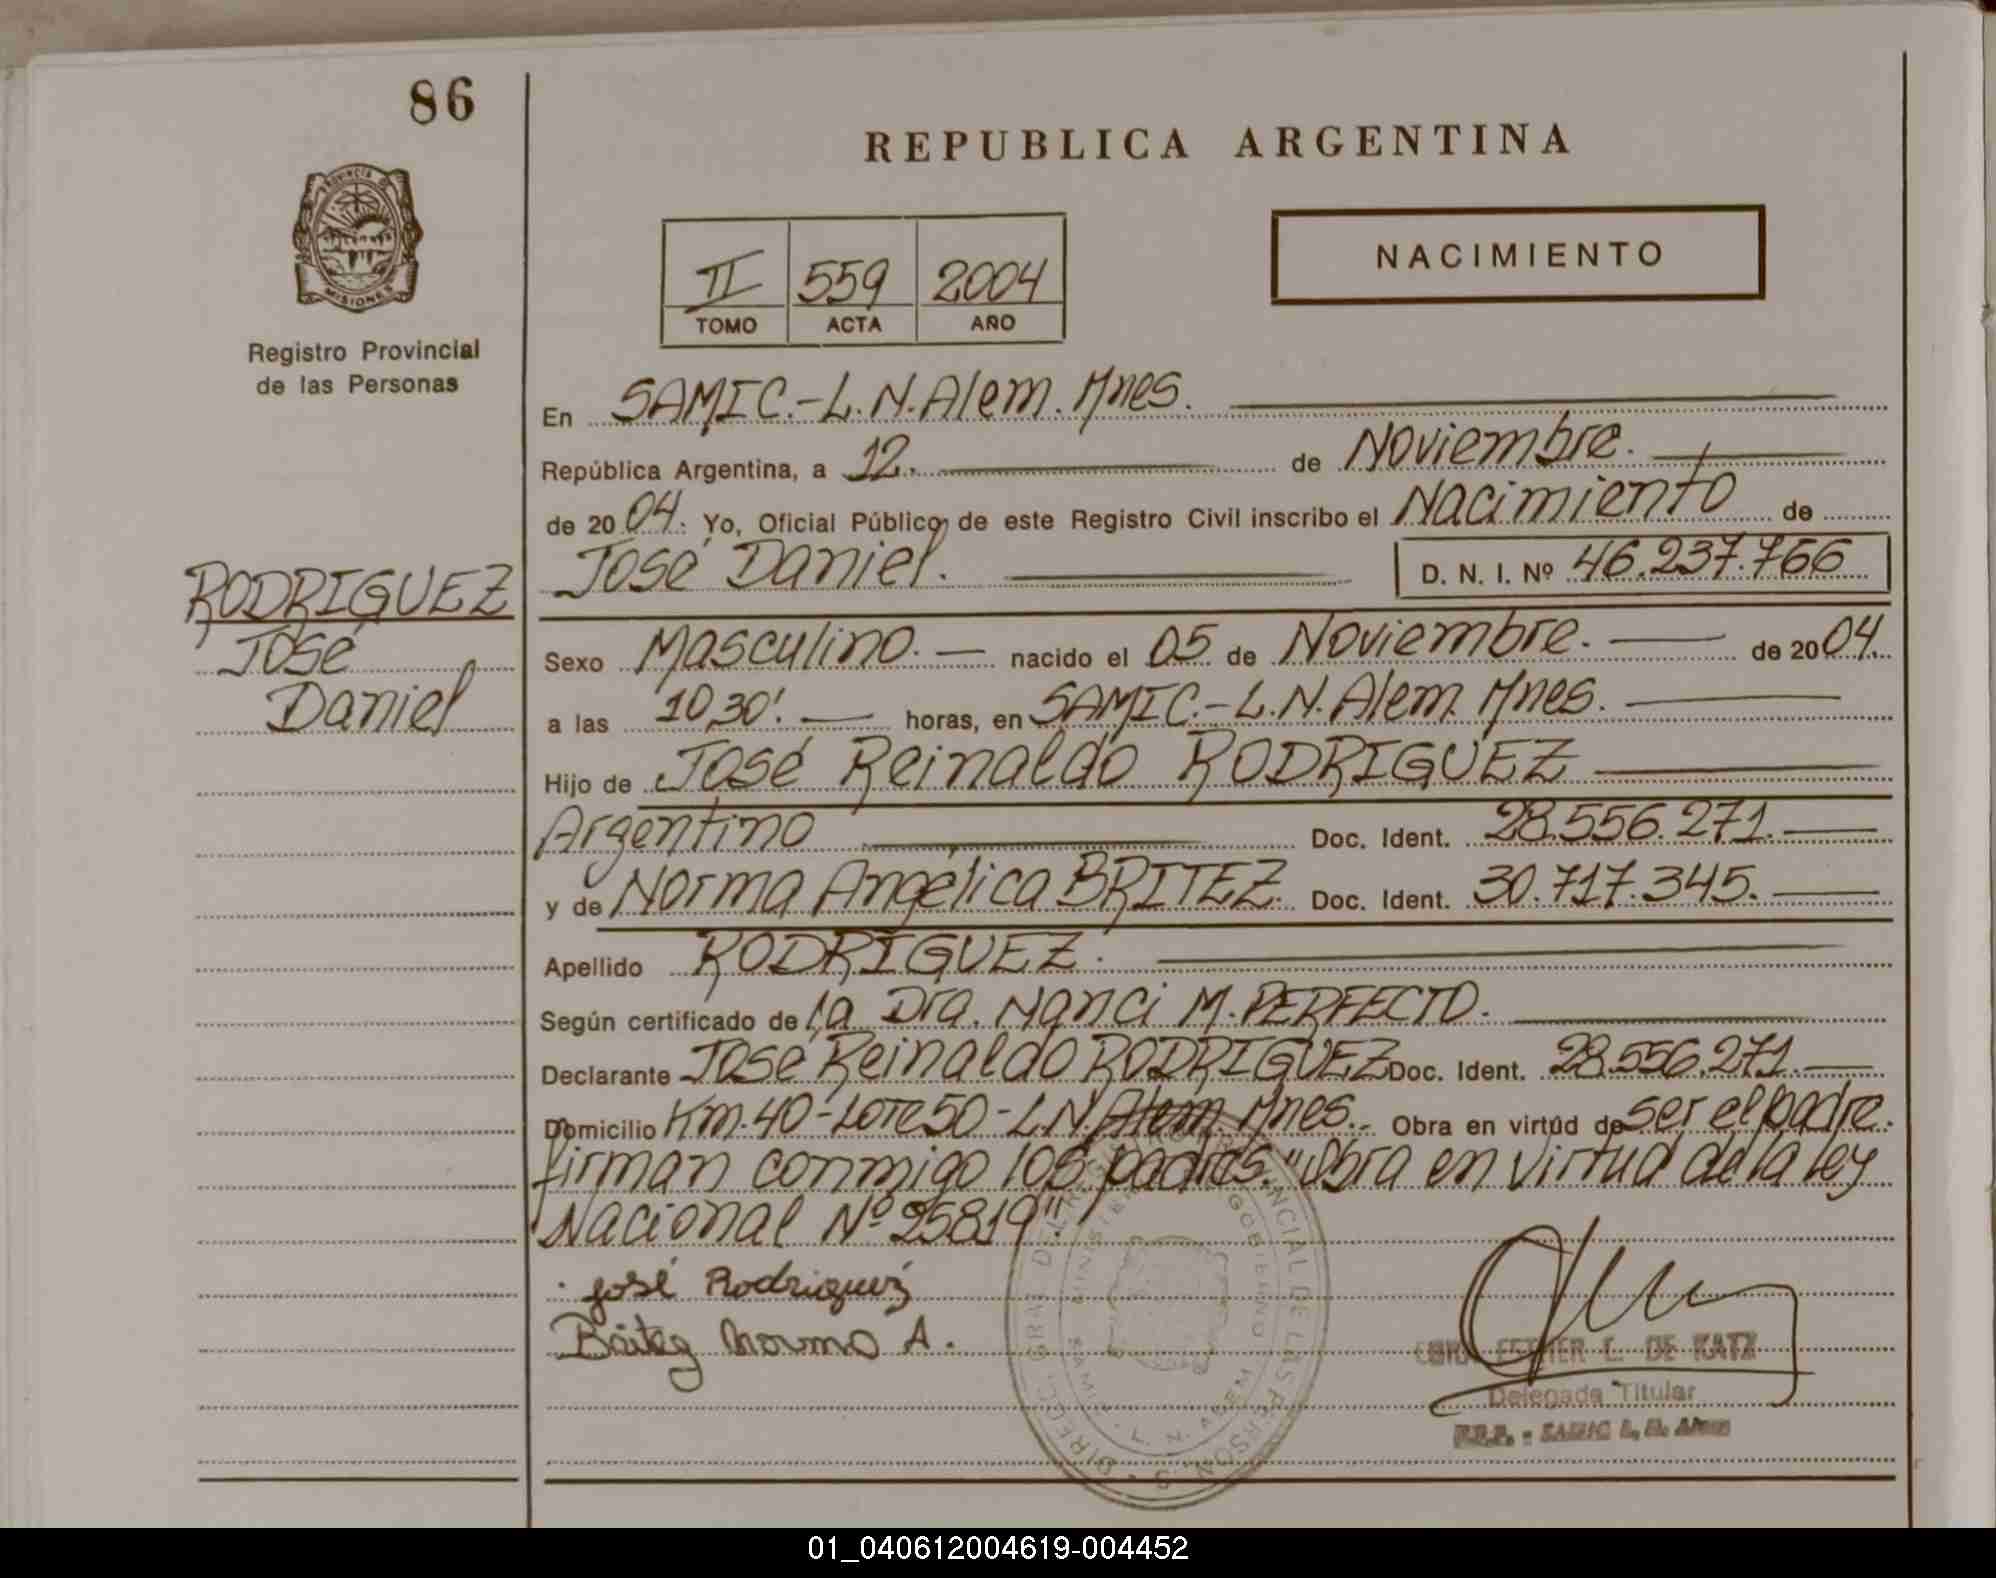 86
REPUBLICA ARGENTINA
PROVINCIA DE
MISIONES
Registro Provincial
de las Personas
II 559 2004
TOMO ACTA AÑO
NACIMIENTO
En SAMIC.-L.N.Alem. Mnes.
República Argentina, a 12. de Noviembre.
de 20 04. Yo, Oficial Público, de este Registro Civil inscribo el Nacimiento de
José Daniel. D. N. I. Nº 46.237.766
RODRIGUEZ
José
Daniel
Sexo Masculino. nacido el 05 de Noviembre. de 20 04.
a las 10,30'. horas, en SAMIC.-L.N.Alem. Mnes.
Hijo de José Reinaldo RODRIGUEZ
Argentino Doc. Ident. 28.556.271.
y de Norma Angélica BRITEZ. Doc. Ident. 30.717.345.
Apellido RODRIGUEZ.
Según certificado de la Dra. Nanci M. PERFECTO.
Declarante José Reinaldo RODRIGUEZ Doc. Ident. 28.556.271.
Domicilio Km.40-Lote 50-L.N.Alem Mnes. Obra en virtud de ser el padre.
firman conmigo los padres. "Obra en virtud de la ley
Nacional Nº 25819".
José Rodriguez
Britez Norma A.
ESTHER L. DE KATZ
Delegada Titular
R.P.P. - SAMIC L. N. Alem
01_040612004619-004452